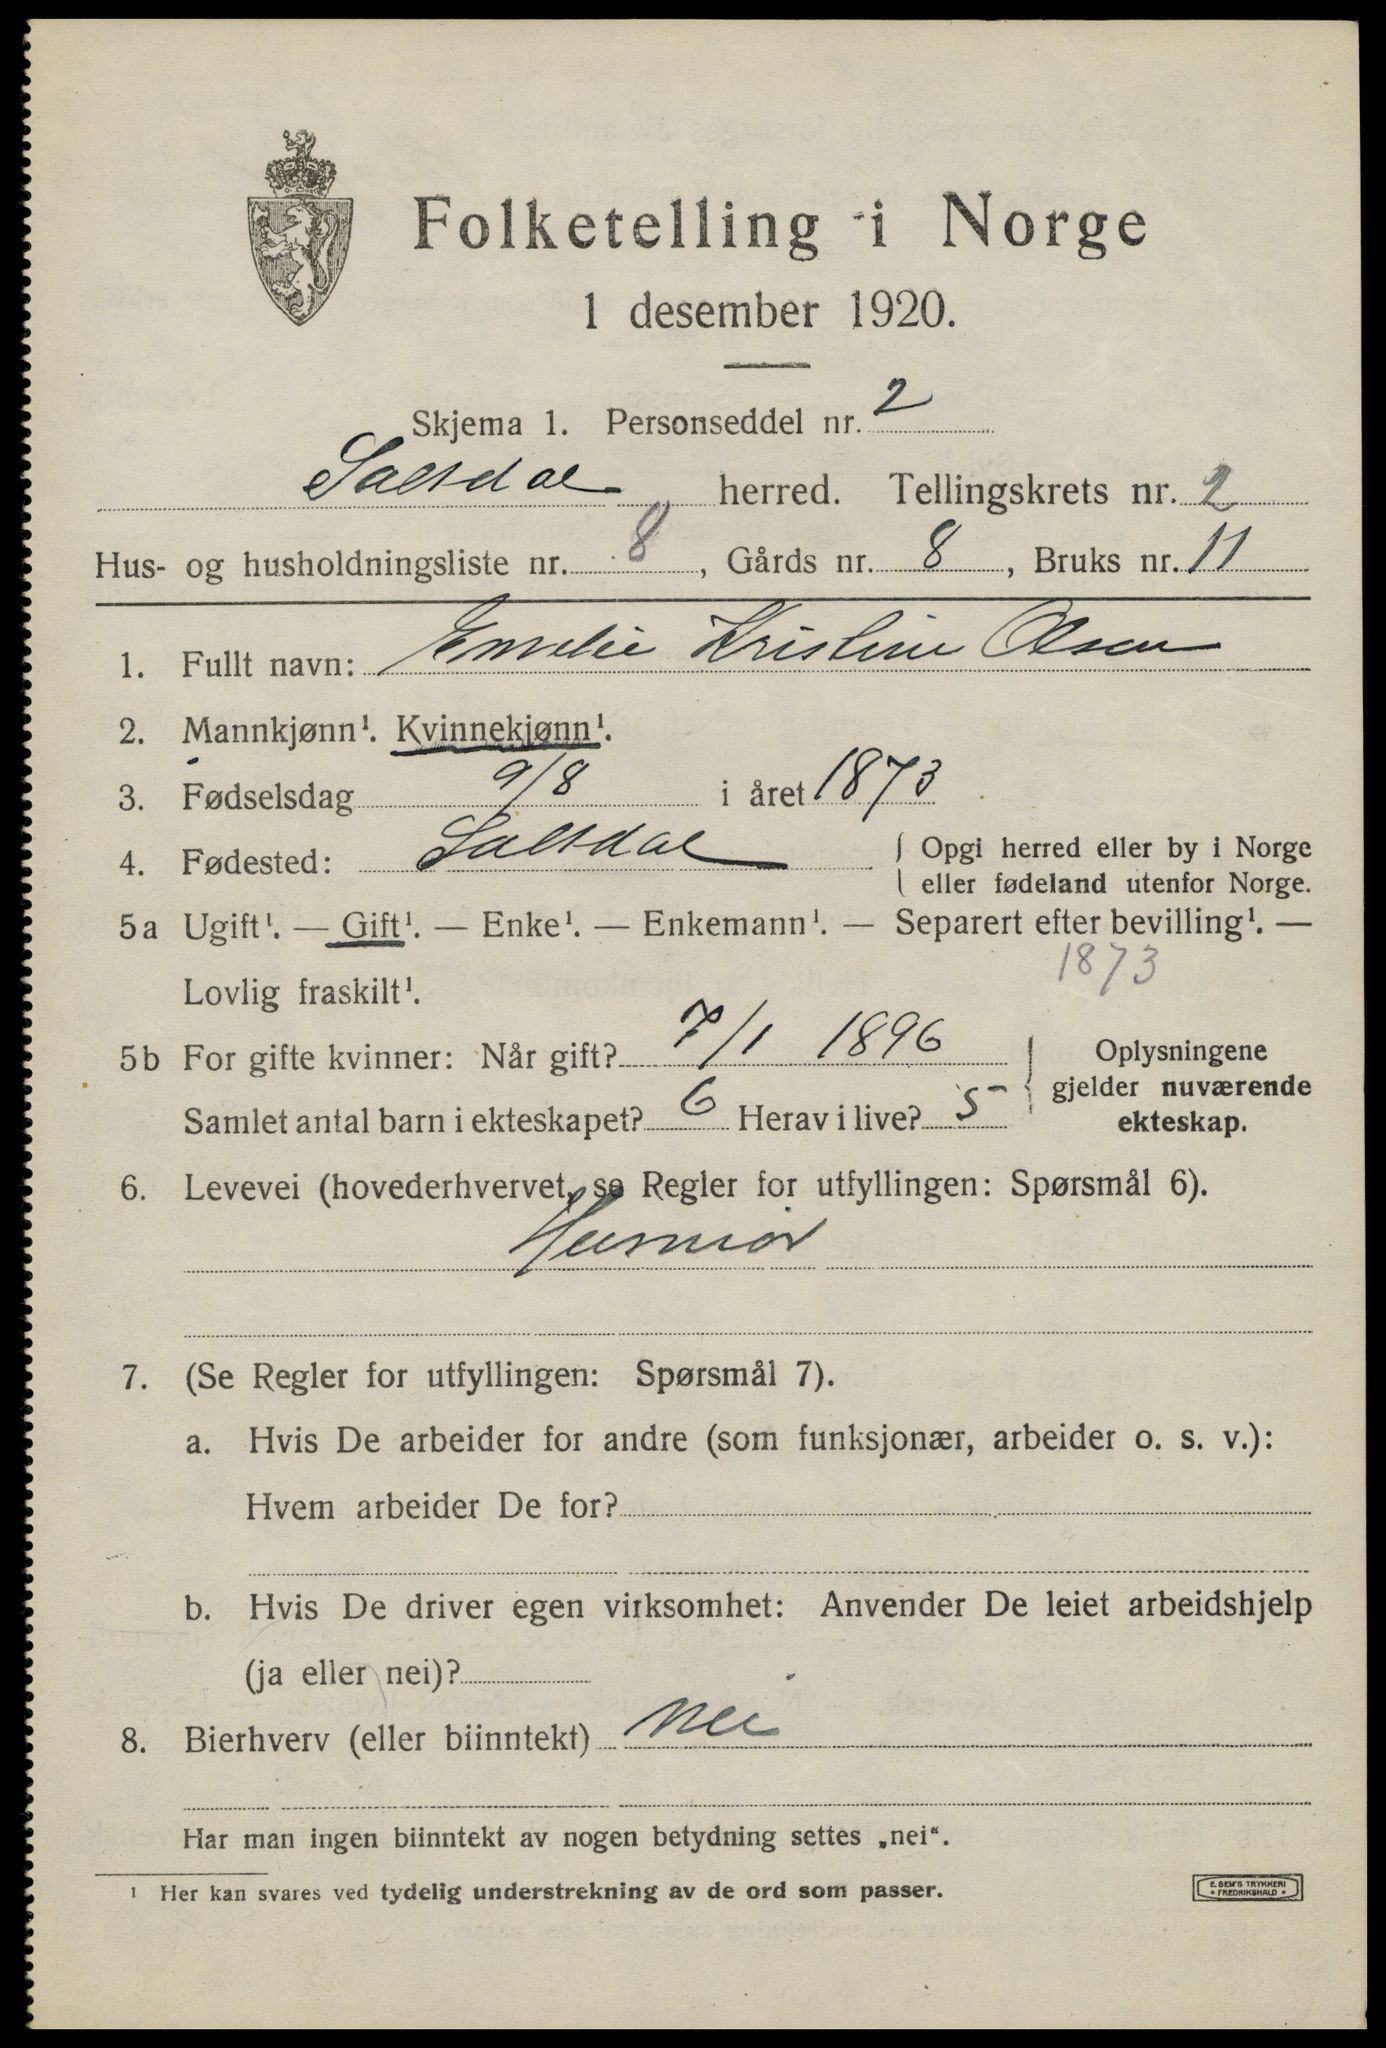 Folketelling i Norge
1 desember 1920.
Skjema 1. Personseddel nr. 2
Saltdal herred. Tellingskrets nr. 2
Hus- og husholdningsliste nr. 8, Gårds nr. 8, Bruks nr. 11
1. Fullt navn: Emelie Kristine Olsen
2. Mannkjønn¹. Kvinnekjønn¹.
3. Fødselsdag 9/8 i året 1873
4. Fødested: Saltdal { Opgi herred eller by i Norge
eller fødeland utenfor Norge.
5a Ugift¹. — Gift¹. — Enke¹. — Enkemann¹. — Separert efter bevilling¹. —
Lovlig fraskilt¹. 1873
5b For gifte kvinner: Når gift? 7/1 1896 Oplysningene
gjelder nuværende
Samlet antal barn i ekteskapet? 6 Herav i live? 5 ekteskap.
6. Levevei (hovederhvervet, se Regler for utfyllingen: Spørsmål 6).
Husmor
7. (Se Regler for utfyllingen: Spørsmål 7).
a. Hvis De arbeider for andre (som funksjonær, arbeider o. s. v.):
Hvem arbeider De for?
b. Hvis De driver egen virksomhet: Anvender De leiet arbeidshjelp
(ja eller nei)?
8. Bierhverv (eller biinntekt) nei
Har man ingen biinntekt av nogen betydning settes „nei“.
¹ Her kan svares ved tydelig understrekning av de ord som passer.
E. SEM'S TRYKKERI
FREDRIKSHALD